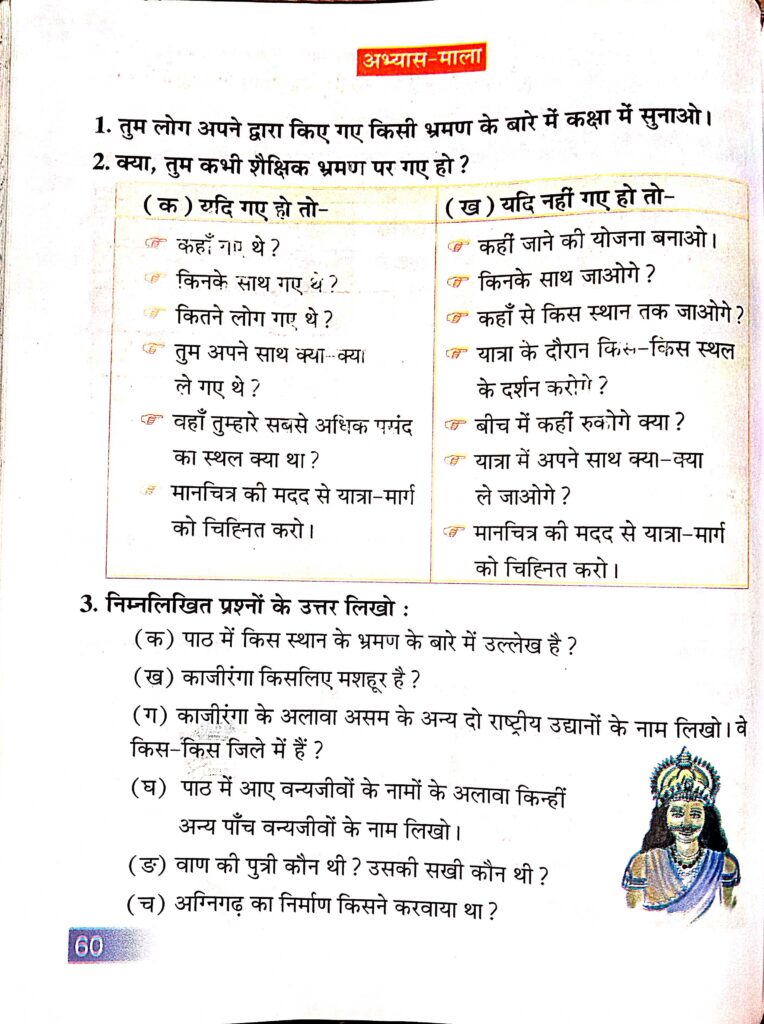 अभ्यास-माला
1. तुम लोग अपने द्वारा किए गए किसी भ्रमण के बारे में कक्षा में सुनाओ।
2. क्या, तुम कभी शैक्षिक भ्रमण पर गए हो ?
(क) यदि गए हो तो-
कहाँ गए थे ?
किनके साथ गए थे ?
कितने लोग गए थे ?
तुम अपने साथ क्या-क्या
ले गए थे ?
वहाँ तुम्हारे सबसे अधिक पसंद
का स्थल क्या था ?
मानचित्र की मदद से यात्रा-मार्ग
को चिह्नित करो।
(ख) यदि नहीं गए हो तो-
कहीं जाने की योजना बनाओ।
किनके साथ जाओगे ?
कहाँ से किस स्थान तक जाओगे ?
यात्रा के दौरान किस-किस स्थल
के दर्शन करोगे ?
बीच में कहीं रुकोगे क्या ?
यात्रा में अपने साथ क्या-क्या
ले जाओगे ?
मानचित्र की मदद से यात्रा-मार्ग
को चिह्नित करो।
3. निम्नलिखित प्रश्नों के उत्तर लिखो :
(क) पाठ में किस स्थान के भ्रमण के बारे में उल्लेख है ?
(ख) काजीरंगा किसलिए मशहूर है ?
(ग) काजीरंगा के अलावा असम के अन्य दो राष्ट्रीय उद्यानों के नाम लिखो। वे
किस-किस जिले में हैं ?
(घ) पाठ में आए वन्यजीवों के नामों के अलावा किन्हीं
अन्य पाँच वन्यजीवों के नाम लिखो।
(ङ) वाण की पुत्री कौन थी ? उसकी सखी कौन थी ?
(च) अग्निगढ़ का निर्माण किसने करवाया था ?
60